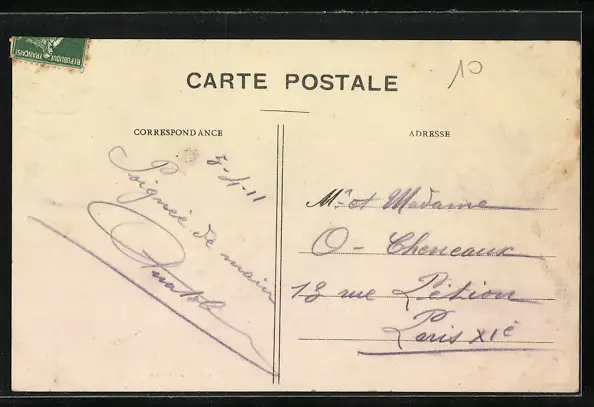 REPUBLIQUE FRANÇAISE
CARTE POSTALE
10
CORRESPONDANCE
ADRESSE
5-4-11
Poignée de main
Anatole
Mr et Madame
O - Cheneaux
13 rue Pétion
Paris XIe